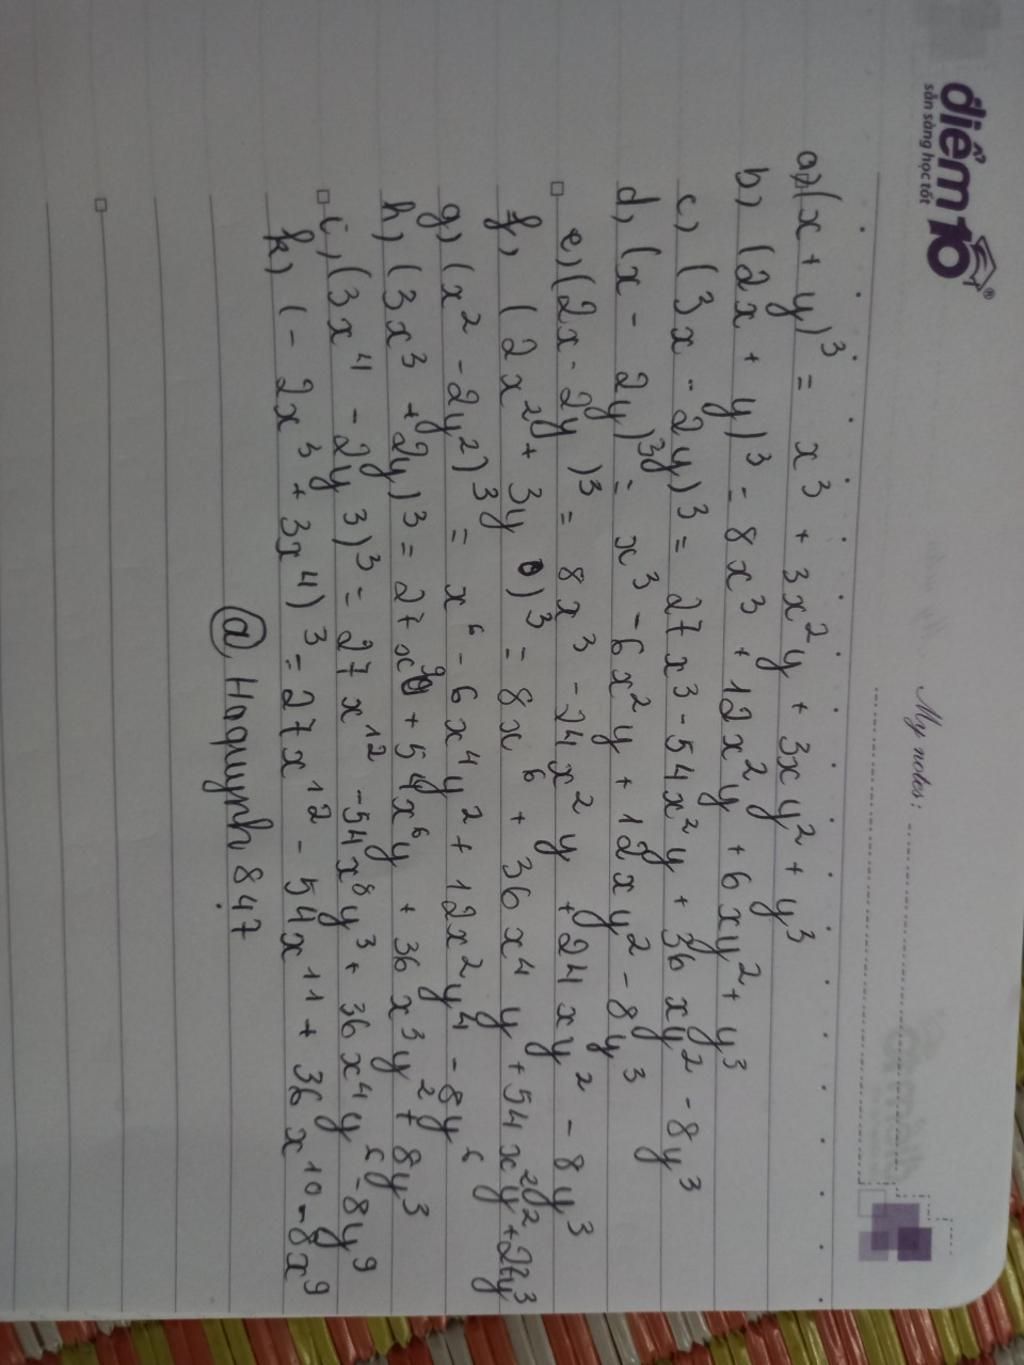 điểm10®
sẵn sàng học tốt
My notes:
a, (x + y)³ = x³ + 3x²y + 3xy² + y³
b, (2x + y)³ = 8x³ + 12x²y + 6xy² + y³
c, (3x - 2y)³ = 27x³ - 54x²y + 36xy² - 8y³
d, (x - 2y)³ = x³ - 6x²y + 12xy² - 8y³
e, (2x - 2y)³ = 8x³ - 24x²y + 24xy² - 8y³
f, (2x² + 3y)³ = 8x⁶ + 36x⁴y + 54x²y² + 27y³
g) (x² - 2y²)³ = x⁶ - 6x⁴y² + 12x²y⁴ - 8y⁶
h) (3x³ + 2y)³ = 27x⁹ + 54x⁶y + 36x³y² + 8y³
i, (3x⁴ - 2y³)³ = 27x¹² - 54x⁸y³ + 36x⁴y⁶ - 8y⁹
k) (- 2x³ + 3x⁴)³ = 27x¹² - 54x¹¹ + 36x¹⁰ - 8x⁹
@ Haquynh 847